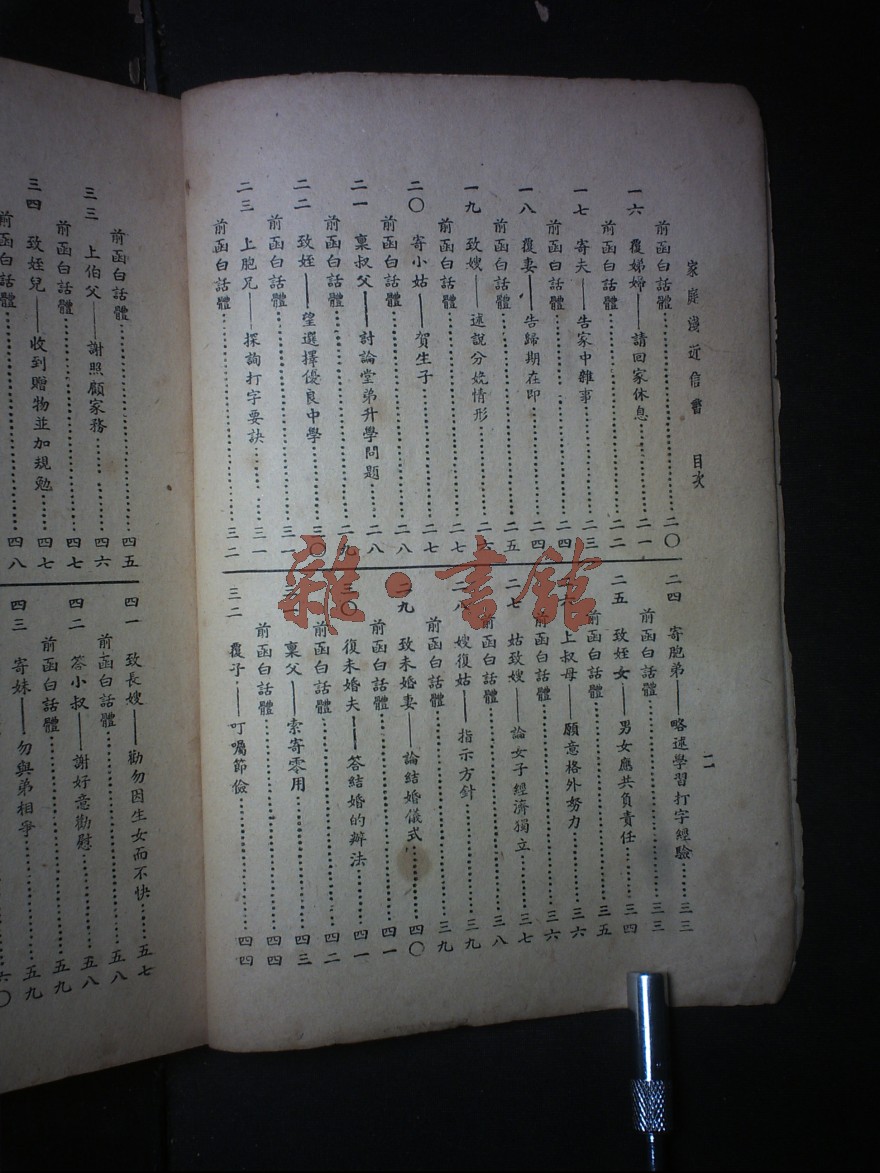 家庭淺近信書 目次
二
前函白話體……二〇
一六 覆婦——請回家休息……二一
前函白話體……二二
一七 寄夫——告家中雜事……二三
前函白話體……二四
一八 覆妻——告歸期在即……二四
前函白話體……二五
一九 致嫂——述說分娩情形……二六
前函白話體……二七
二〇 寄小姑——賀生子……二七
前函白話體……二八
二一 稟叔父——討論堂弟升學問題……二八
前函白話體……二九
二二 致姪——望選擇優良中學……三〇
前函白話體……三一
二三 上胞兄——探詢打字要訣……三一
前函白話體……三二
二四 寄胞弟——略述學習打字經驗……三三
前函白話體……三三
二五 致姪女——男女應共負責任……三四
前函白話體……三五
二六 上叔母——願意格外努力……三六
前函白話體……三六
二七 姑致嫂——論女子經濟獨立……三七
前函白話體……三八
二八 嫂復姑——指示方針……三九
前函白話體……三九
二九 致未婚妻——論結婚儀式……四〇
前函白話體……四一
三〇 復未婚夫——答結婚的辦法……四一
前函白話體……四二
三一 稟父——索寄零用……四三
前函白話體……四四
三二 覆子——叮囑節儉……四四
前函白話體……四五
三三 上伯父——謝照顧家務……四六
前函白話體……四七
三四 致姪兒——收到贈物並加規勉……四七
前函白話體……四八
四一 致長嫂——勸勿因生女而不快……五七
前函白話體……五八
四二 答小叔——謝好意勸慰……五八
前函白話體……五九
四三 寄妹——勿與弟相爭……五九
六〇
雜·書館